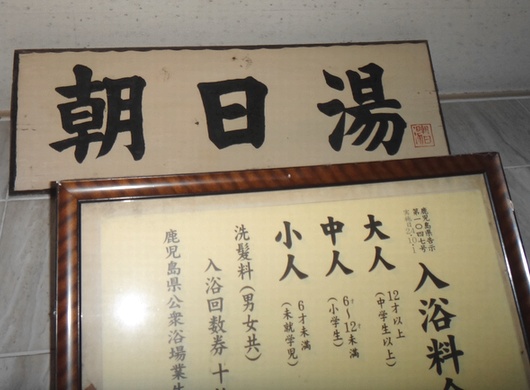 朝日湯
鹿児島県告示
第一〇四七号
入浴料金
大人
(中学生以上)
12才以上
中人
(小学生)
6才~12才未満
小人
(未就学児)
6才未満
洗髪料(男女共)
入浴回数券十
鹿児島県公衆浴場業生